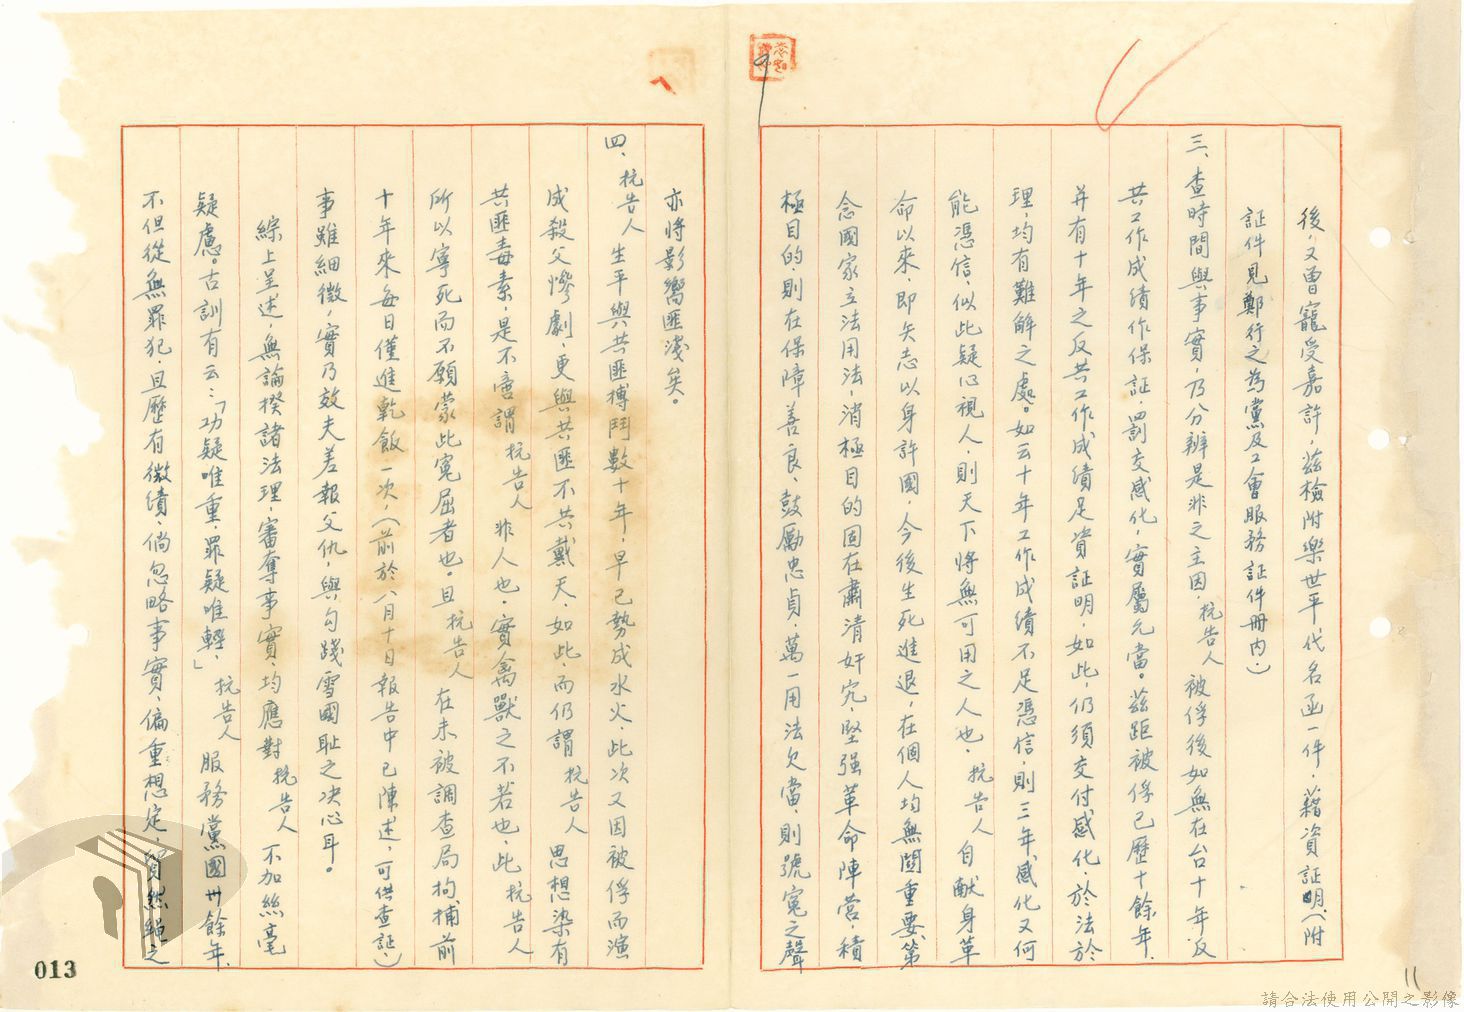 後，又曾寵受嘉許，茲檢附樂世平代名函一件，藉資証明、（附
証件見鄭行之為黨及工會服務証件冊內。）
三、查時間與事實，乃分辨是非之主因，抗告人被俘後如無在台十年反
共工作成績作保証，四罰交感化，實屬允當。茲距被俘已歷十餘年，
并有十年之反共工作成績足資証明，如此，仍須交付感化，於法於
理，均有難解之處。如云十年工作成績不足憑信，則三年感化又何
能憑信，似此疑心視人，則天下將無可用之人也，抗告人自献身革
命以來，即矢志以身許國，今後生死進退，在個人均無関重要，第
念國家立法用法，消極目的固在肅清奸宄，堅强革命陣营，積
極目的，則在保障善良、鼓勵忠貞，萬一用法欠當，則號寃之聲
亦將影響匪淺矣。
四、抗告人生平與共匪搏鬥數十年，早已勢成水火，此次又因被俘而演
成殺父慘劇，更與共匪不共戴天，如此，而仍謂抗告人思想染有
共匪毒素，是不啻謂抗告人非人也，實禽獸之不若也，此抗告人
所以寧死而不願蒙此寃屈者也。且抗告人在未被調查局拘捕前
十年來每日僅進乾飯一次，（前於八月十日報告中已陳述，可供查証，）
事雖細微，實乃效夫差報父仇，與勾踐雪國耻之决心耳。
綜上呈述，無論揆諸法理，審奪事實，均應對抗告人不加絲毫
疑慮。古訓有云：「功疑唯重，罪疑唯輕，」抗告人服務黨國卅餘年，
不但從無罪犯，且歷有微績，倘忽略事實，偏重想定，貿然繩之
013
11
請合法使用公開之影像